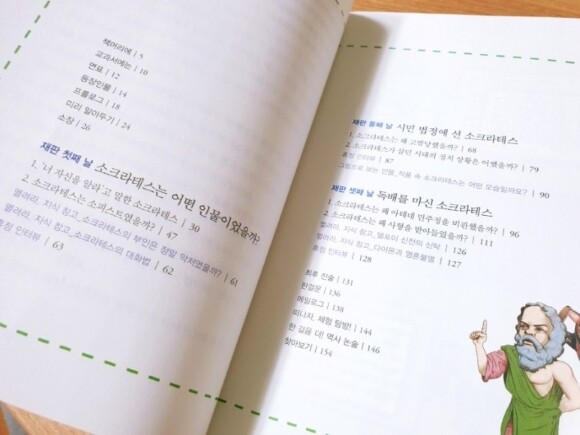 책머리에 | 5
교과서에는 | 10
연표 | 12
등장인물 | 14
프롤로그 | 18
미리 알아두기 | 24
소장 | 26
재판 첫째 날 소크라테스는 어떤 인물이었을까?
1. '너 자신을 알라'고 말한 소크라테스 | 30
2. 소크라테스는 소피스트였을까? | 47
열려라, 지식 창고_소크라테스의 부인은 정말 악처였을까? | 61
열려라, 지식 창고_소크라테스의 대화법 | 62
휴정 인터뷰 | 63
재판 둘째 날 시민 법정에 선 소크라테스
1. 소크라테스는 왜 고발당했을까? | 68
2. 소크라테스가 살던 시대의 정치 상황은 어땠을까? | 79
휴정 인터뷰 | 87
그림으로 보는 인물_작품 속 소크라테스는 어떤 모습일까요? | 90
재판 셋째 날 독배를 마신 소크라테스
1. 소크라테스는 왜 아테네 민주정을 비판했을까? | 96
2. 소크라테스는 왜 사형을 받아들였을까? | 111
열려라, 지식 창고_델포이 신전의 신탁 | 126
열려라, 지식 창고_다이몬과 영혼불멸 | 127
휴정 인터뷰 | 128
최후 진술 | 131
판결문 | 136
에필로그 | 138
떠나자, 체험 탐방! | 144
한 걸음 더! 역사 논술 | 146
찾아보기 | 154